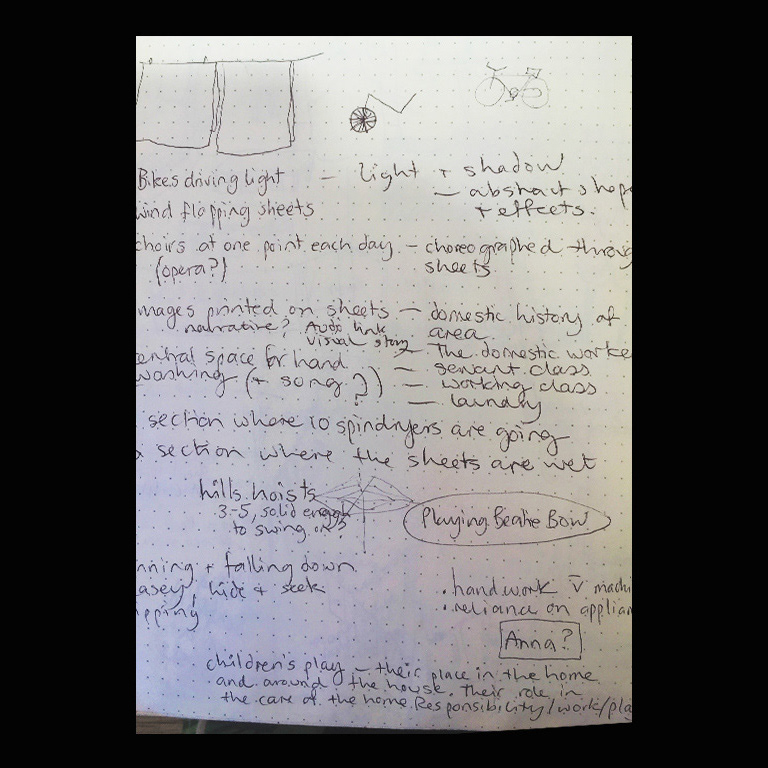 Bikes driving light — light + shadow
— abstract shap
wind flapping sheets + effects.
choirs at one point each day — choreographed throug
(opera?) sheets
mages printed on sheets — domestic history of
narrative? Audio link area
visual story
— The domestic worke
entral space for hand — servant class
washing (+ song?) — working class
— laundry
section where 10 spindryers are going
section where the sheets are wet
hills hoists
3-5, solid enough
to swing on?
Playing Beatie Bow
nning + falling down
asey, hide + seek
ipping
• handwork v machi
• reliance on applian
Anna?
children's play — their place in the home
and around the house. Their role in
the care of the home. Responsibility/work/pla